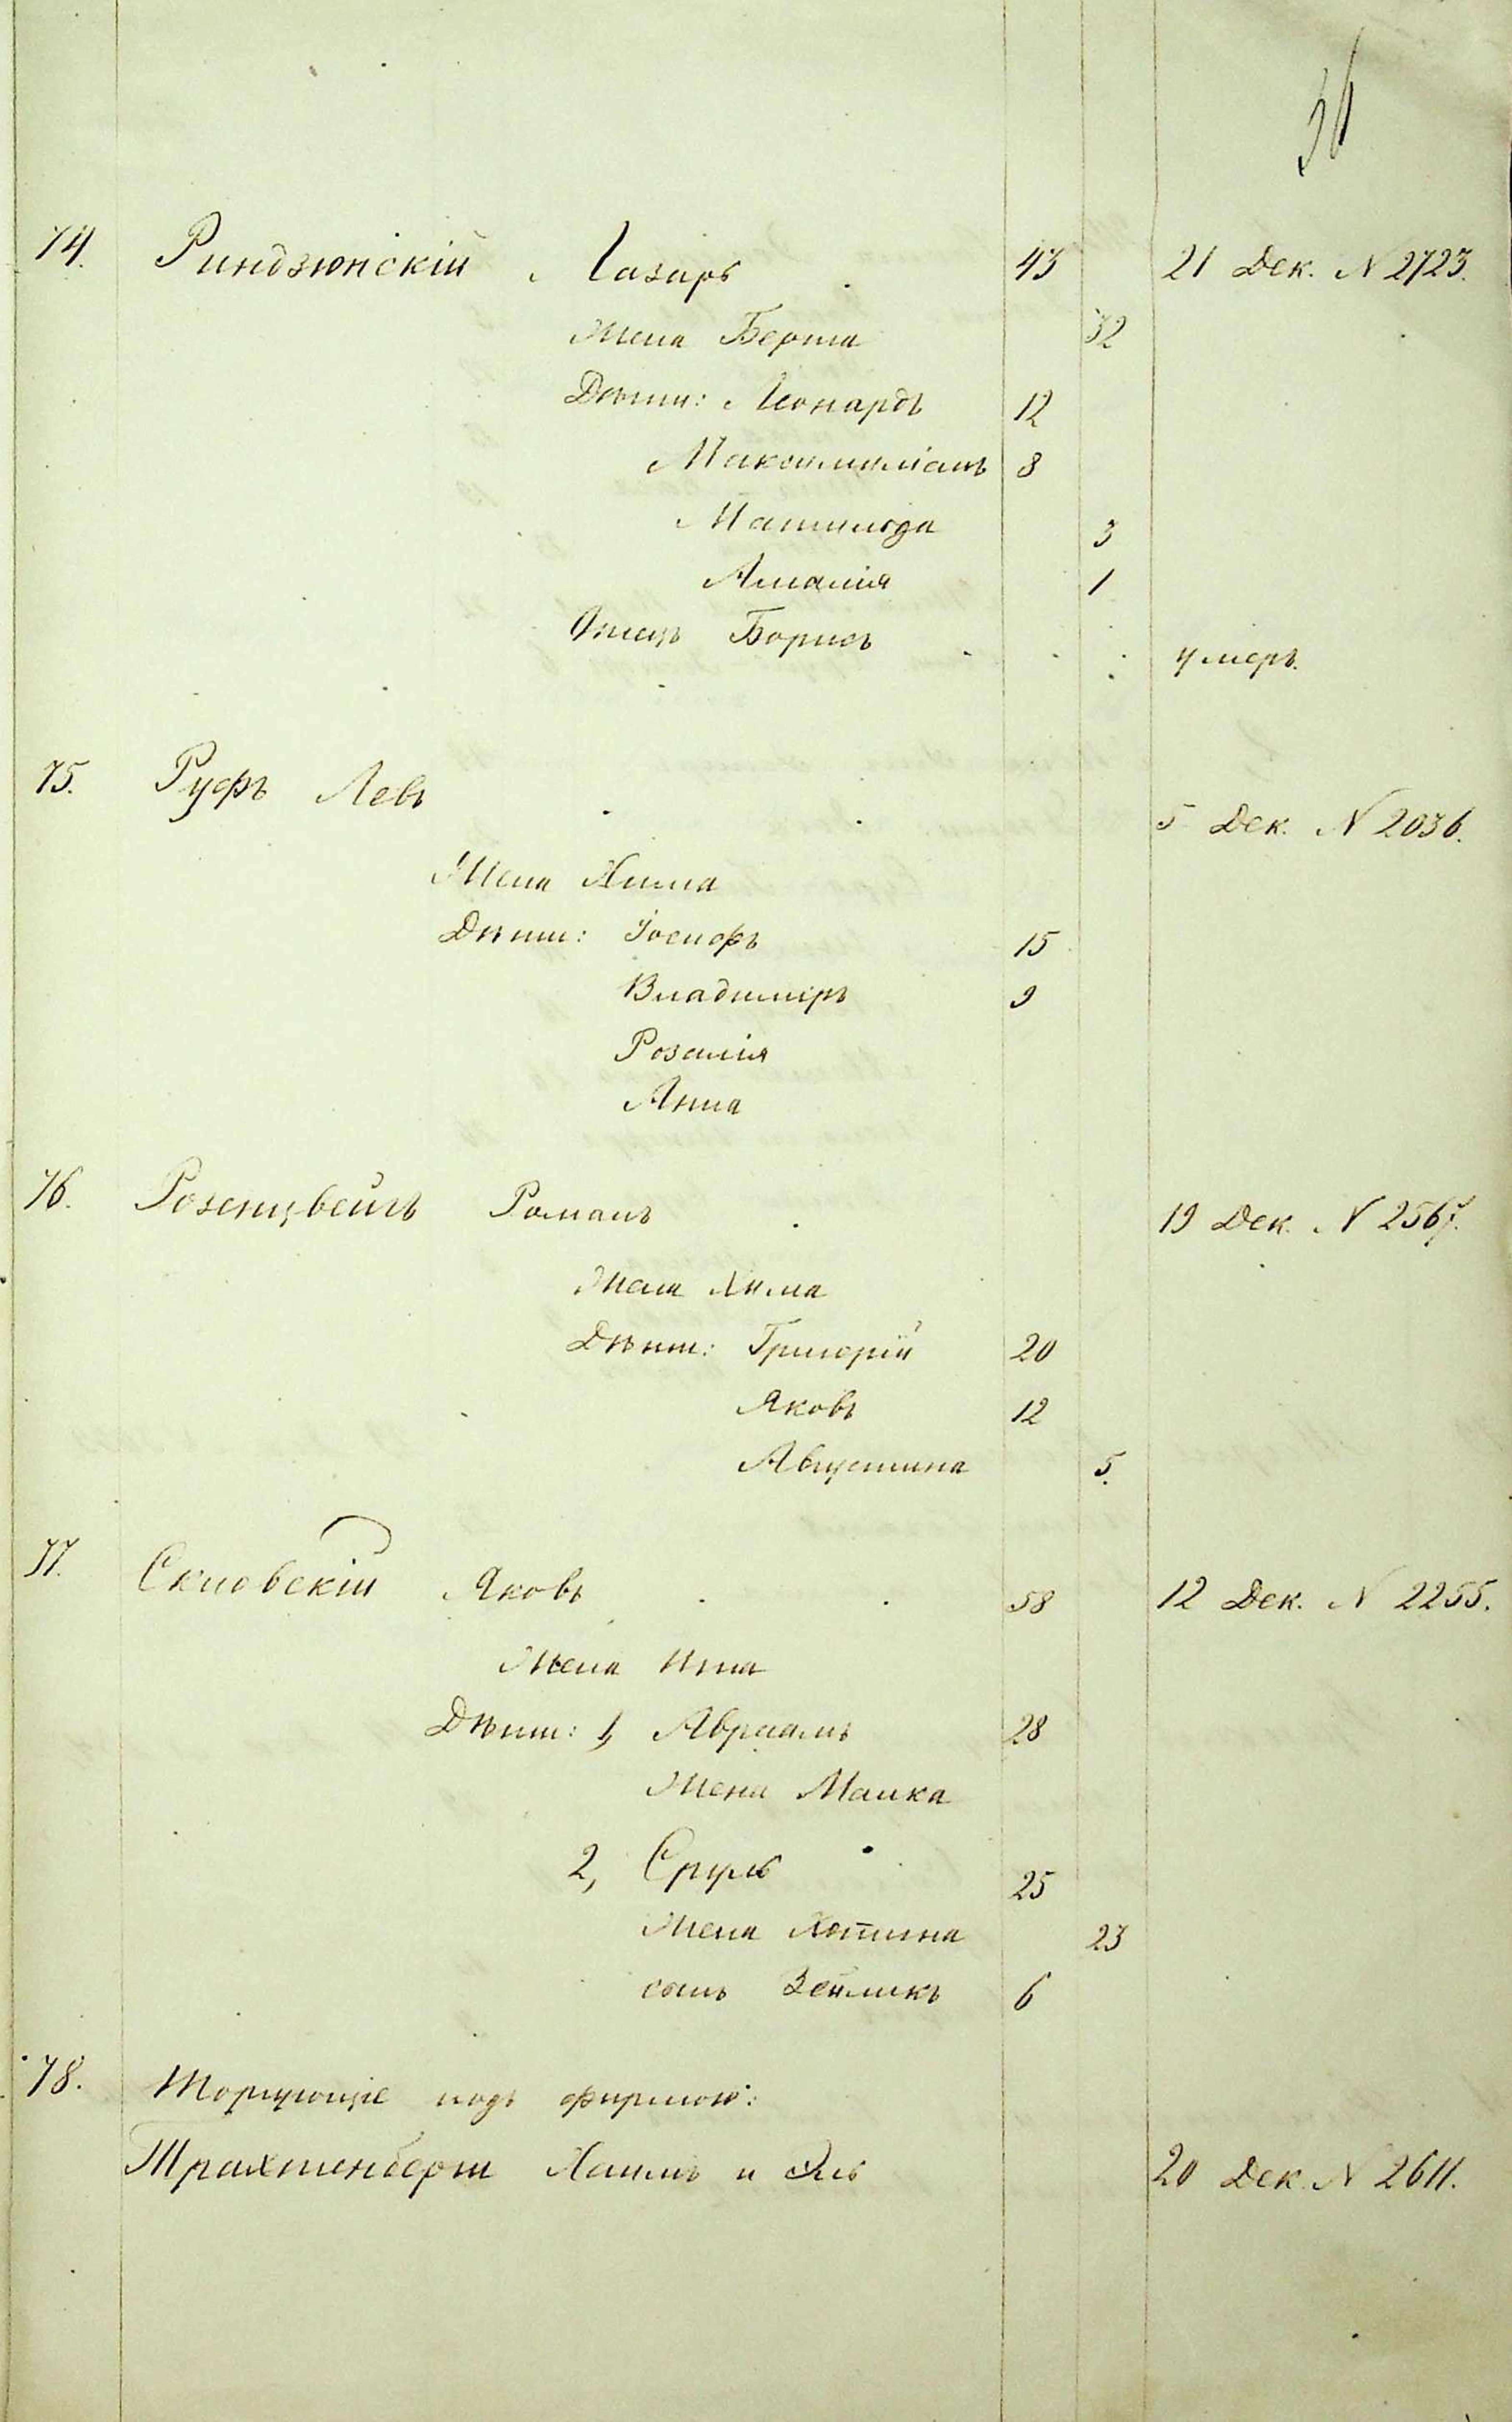 36
74. Риндзюнскій Лазарь 43 21 Дек. N 2723.
Жена Берта 32
Дѣти: Леонардъ 12
Максимиліанъ 8
Матильда 3
Амалія 1
Отецъ Борисъ умеръ.
75. Руфъ Левъ 5 Дек. N 2036.
Жена Хима
Дѣти: Іосифъ 15
Владиміръ 9
Розалія
Анна
76. Розенцвейгъ Романъ 19 Дек. N 2567.
Жена Хима
Дѣти: Григорій 20
Яковъ 12
Августина 5.
77. Скловскій Яковъ 58 12 Дек. N 2255.
Жена
Дѣти: 1, Авраамъ 28
Жена Малка
2, Сруль 25
Жена 23
сынъ Зеймикъ 6
78. Торгующіе подъ фирмою:
Трахтенберги Хаимъ и 20 Дек. N 2611.